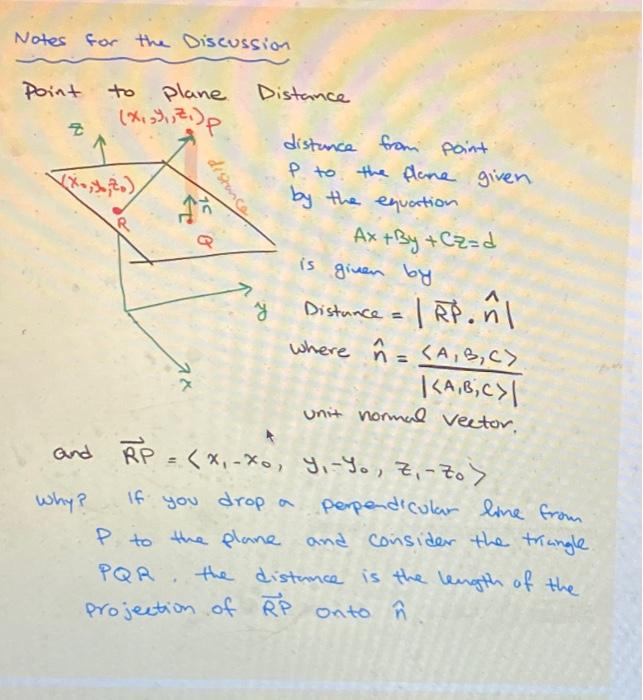 Notes for the Discussion
Point to plane Distance
(x₁,y₁,z₁) P
z
(x₀,y₀,z₀)
R
n⃗
distance
Q
y
x
distance from point
P to the plane given
by the equation
Ax+By+Cz=d
is given by
Distance = |R͞P⃗ . n̂|
where n̂ = <A,B,C>
|<A,B,C>|
unit normal vector.
and RP⃗ = <x₁-x₀, y₁-y₀, z₁-z₀>
Why? If you drop a perpendicular line from
P to the plane and consider the triangle
PQR. the distance is the length of the
projection of RP⃗ onto n̂